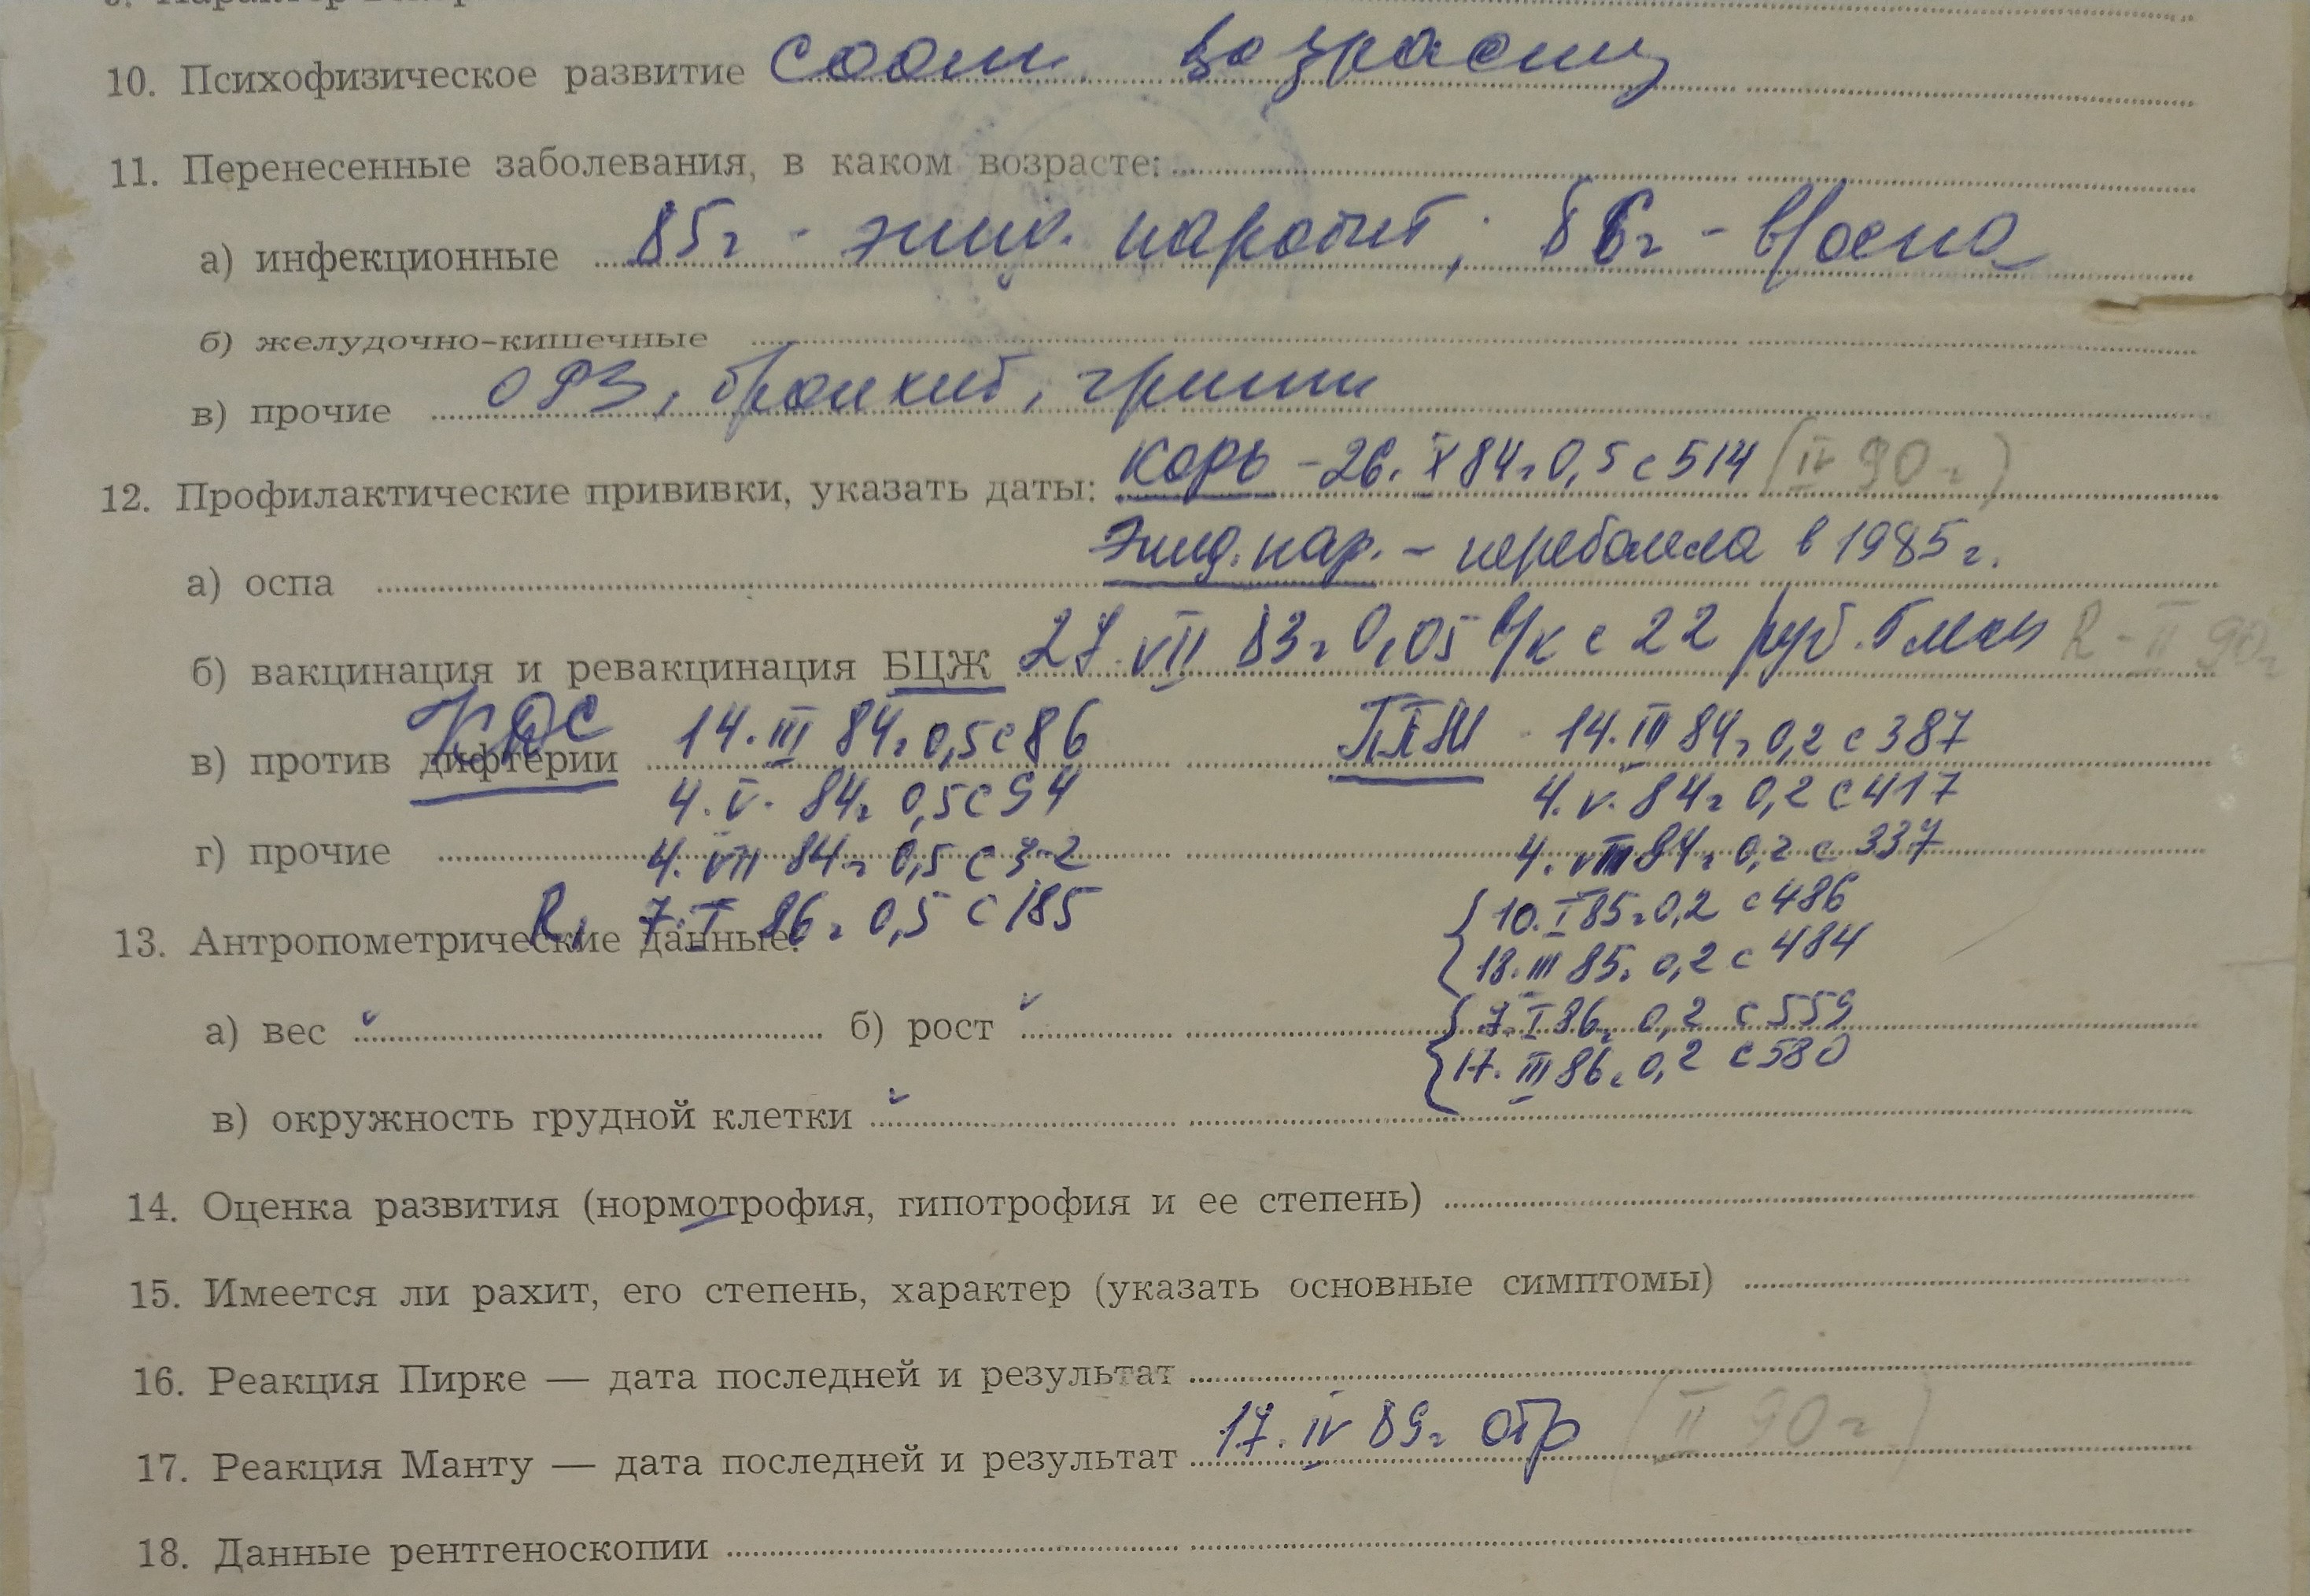 10. Психофизическое развитие соот. возрасту
11. Перенесенные заболевания, в каком возрасте:
а) инфекционные 85г - эпид. паротит; 86г - в/оспа
б) желудочно-кишечные
в) прочие ОРЗ, бронхит, грипп
12. Профилактические прививки, указать даты: корь - 26. X 84г 0,5 с 514 (IV 90г)
эпид. пар. - переболела в 1985г.
а) оспа
б) вакцинация и ревакцинация БЦЖ 27. VII 83г 0,05 в/к с 22 руб. 5мм R - II 90г
АКДС
в) против дифтерии 14. III 84г 0,5 с 86 ППМ - 14. III 84г 0,2 с 387
4. V. 84г 0,5 с 94 4. V. 84г 0,2 с 417
г) прочие 4. VII 84г 0,5 с 3-2 4. VIII 84г 0,2 с 337
R1 7. I 86г 0,5 с 185 10. I 85г 0,2 с 486
13. Антропометрические данные: 18. III 85г 0,2 с 484
а) вес б) рост 7. I 86г 0,2 с 559
17. III 86г 0,2 с 580
в) окружность грудной клетки
14. Оценка развития (нормотрофия, гипотрофия и ее степень)
15. Имеется ли рахит, его степень, характер (указать основные симптомы)
16. Реакция Пирке — дата последней и результат
17. Реакция Манту — дата последней и результат 17. IV 89г отр (II 90г)
18. Данные рентгеноскопии